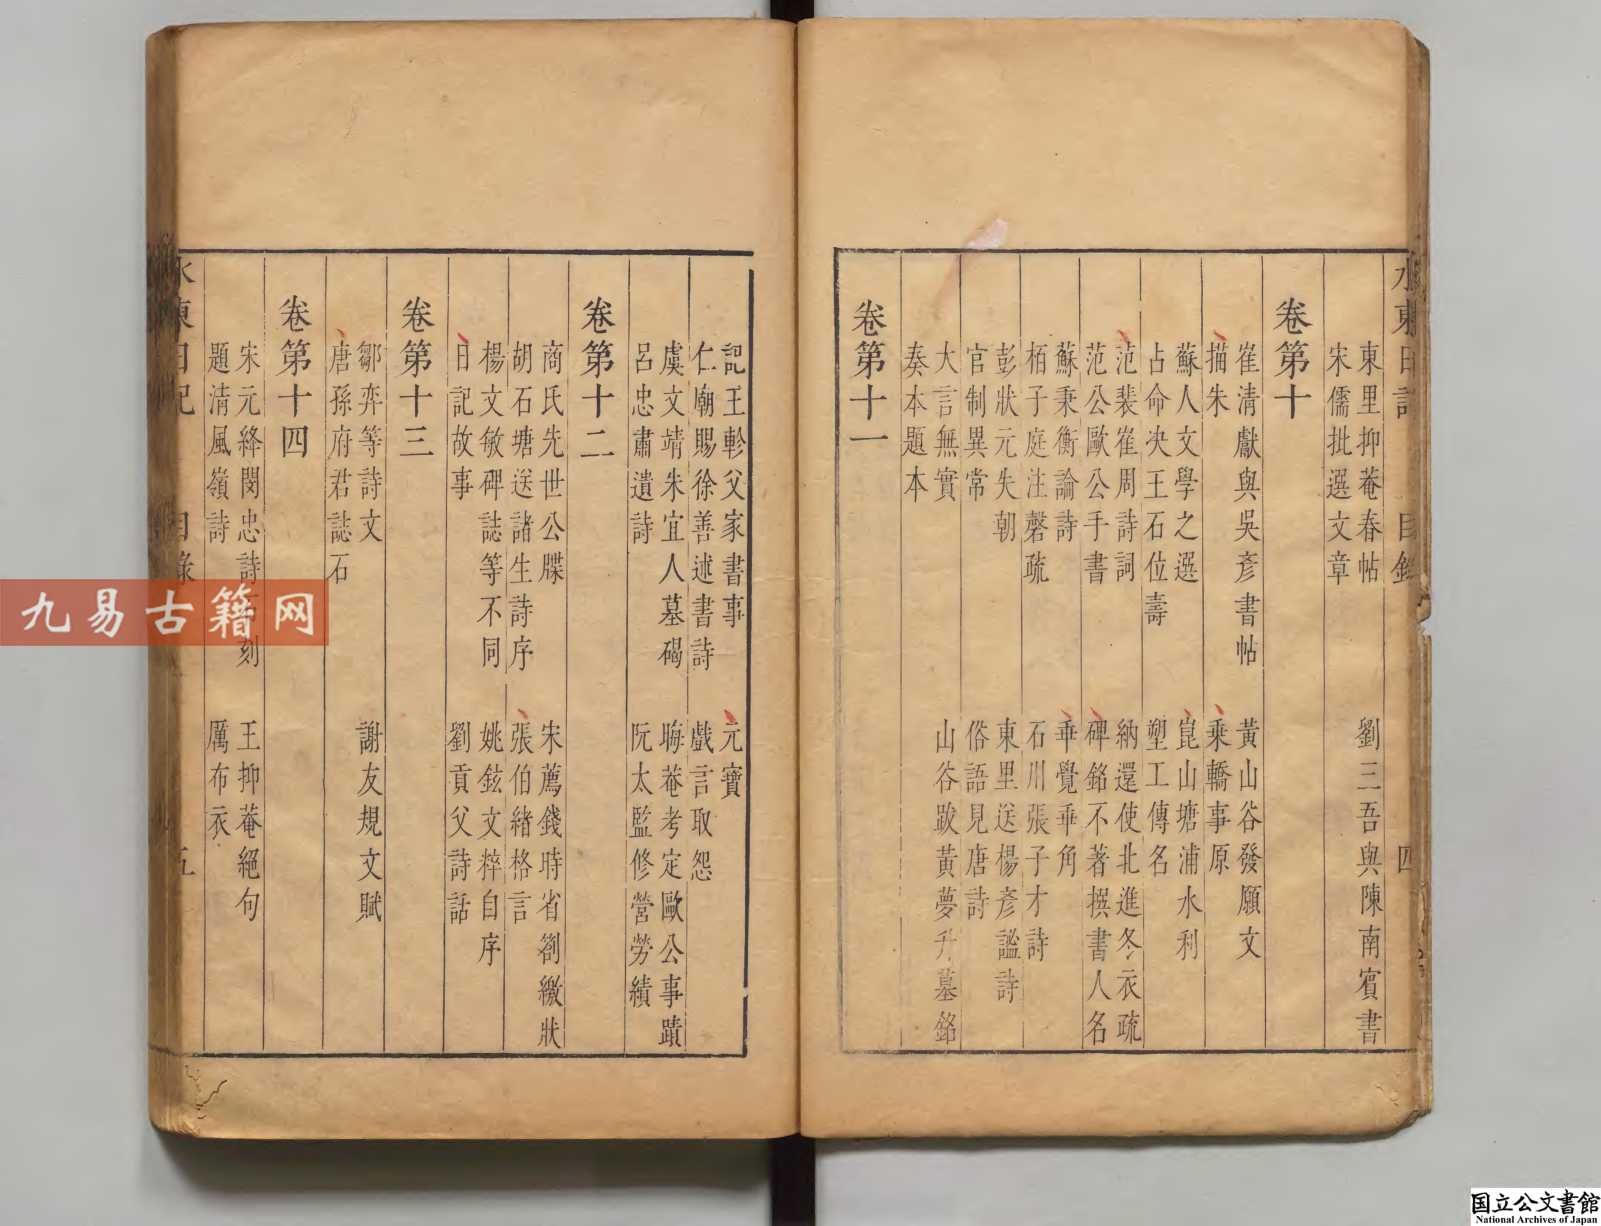 水東日記 目錄 四
東里抑菴春帖 劉三吾與陳南賓書
宋儒批選文章
卷第十
崔清獻與吳彥書帖 黃山谷發願文
描朱 乘轎事原
蘇人文學之選 崑山塘浦水利
占命决王石位壽 塑工傳名
范裴崔周詩詞 納還使北進冬衣疏
范公歐公手書 碑銘不著撰書人名
蘇秉衡論詩 垂覺垂角
栢子庭注磬疏 石川張子才詩
彭狀元失朝 東里送楊彥謐詩
官制異常 俗語見唐詩
大言無實 山谷跋黃夢升墓銘
奏本題本
卷第十一
記王軫父家書事 元寶
仁廟賜徐善述書詩 戲言取怨
虞文靖朱宜人墓碣 晦菴考定歐公事蹟
呂忠肅遺詩 阮太監修營勞績
卷第十二
商氏先世公牒 宋薦錢時省劄繳狀
胡石塘送諸生詩序 張伯緒格言
楊文敏碑誌等不同 姚鉉文粹自序
日記故事 劉貢父詩話
卷第十三
鄒弈等詩文 謝友規文賦
唐孫府君誌石
卷第十四
宋元絳閔忠詩 刻 王抑菴絕句
題清風嶺詩 厲布衣
水東日記 目錄 五
九易古籍网
国立公文書館
National Archives of Japan